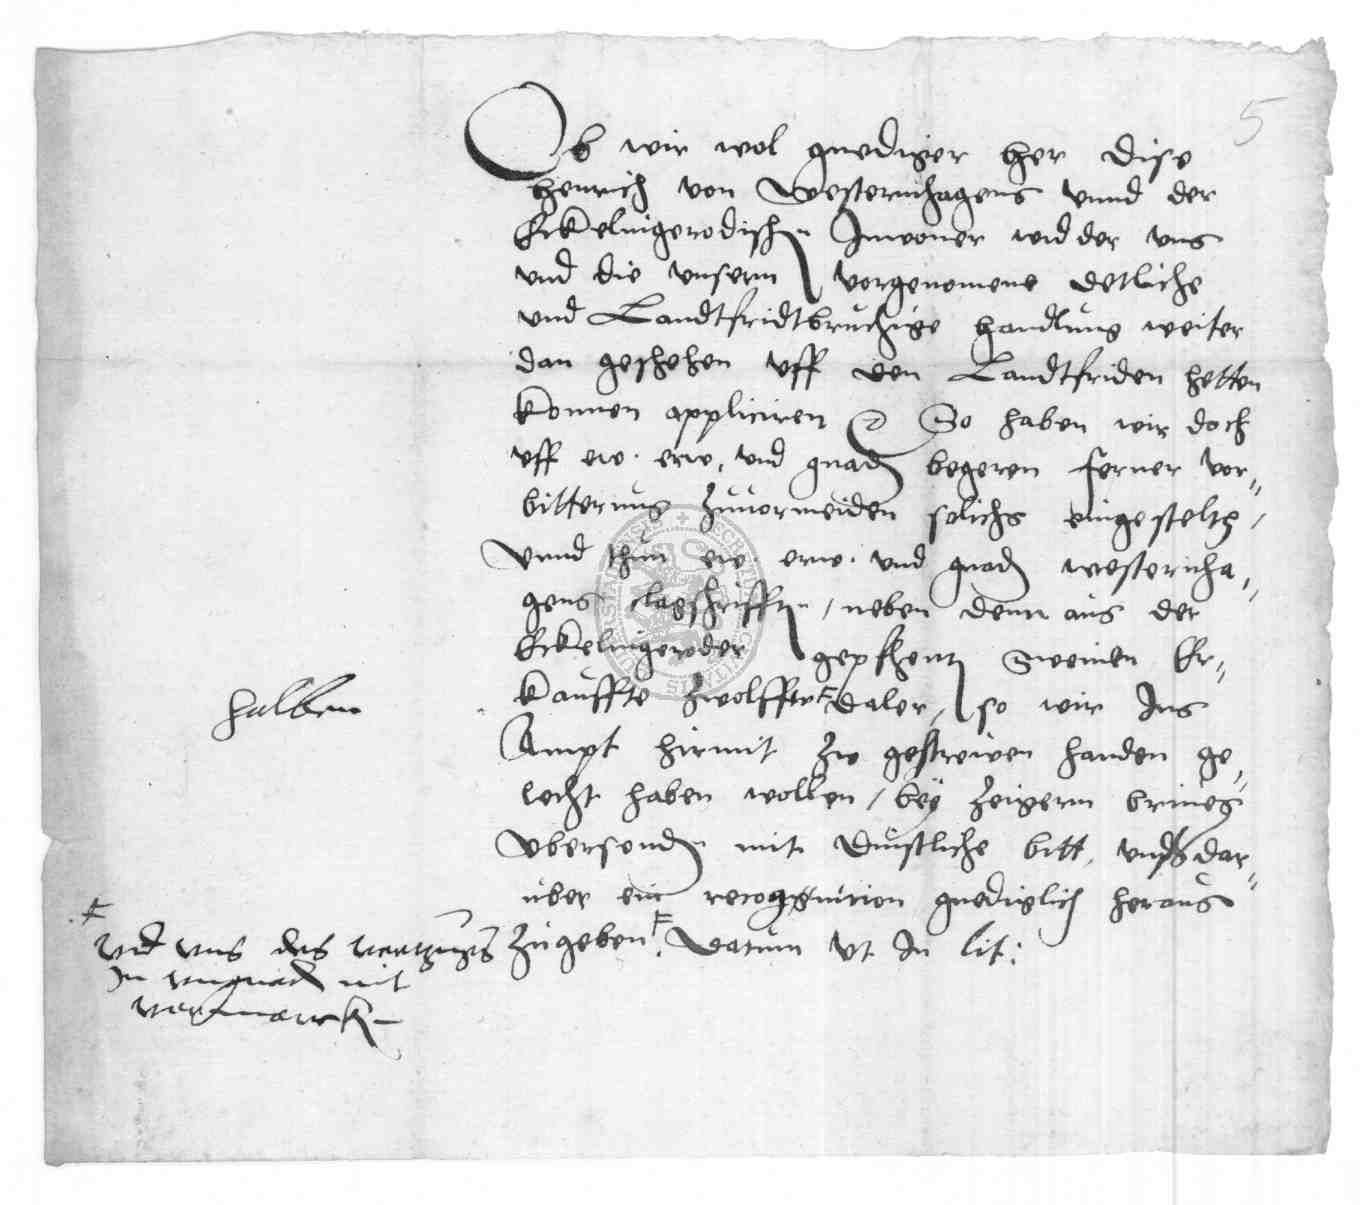 5
Ob wir wol gnediger her dise
Henrich von Westernhagens vnnd der
Eckelingerodischen Inwoner widder vns
vnd die vnsern vorgenomene detliche
vnd Landtfridtbruchige handlung weiter
dan geschehen vff den Landtfriden hetten
konnen appliciren So haben wir doch
vff ew. erw. vnd gnad begeren ferner vor-
bitterung zuuormeiden solichs eingestelth /
Vnnd thun ew erw. vnd gnad westernha-
gens clagschrifften / neben denn aus der
Eckelingeroder gepfhenten Sweinen Er-
kauffte zwolffte daler / so wir Ins
Ampt hirmit zw getrewen handen ge-
lecht haben wollen / bey zeigern brieues
vbersenden mit dinstliche bitt, vnns dar-
uber ein recognition gnediglich heraus
zugeben. Datum vt In lit:
halben
vnd vns des
In vngnaden nit
vermarcken